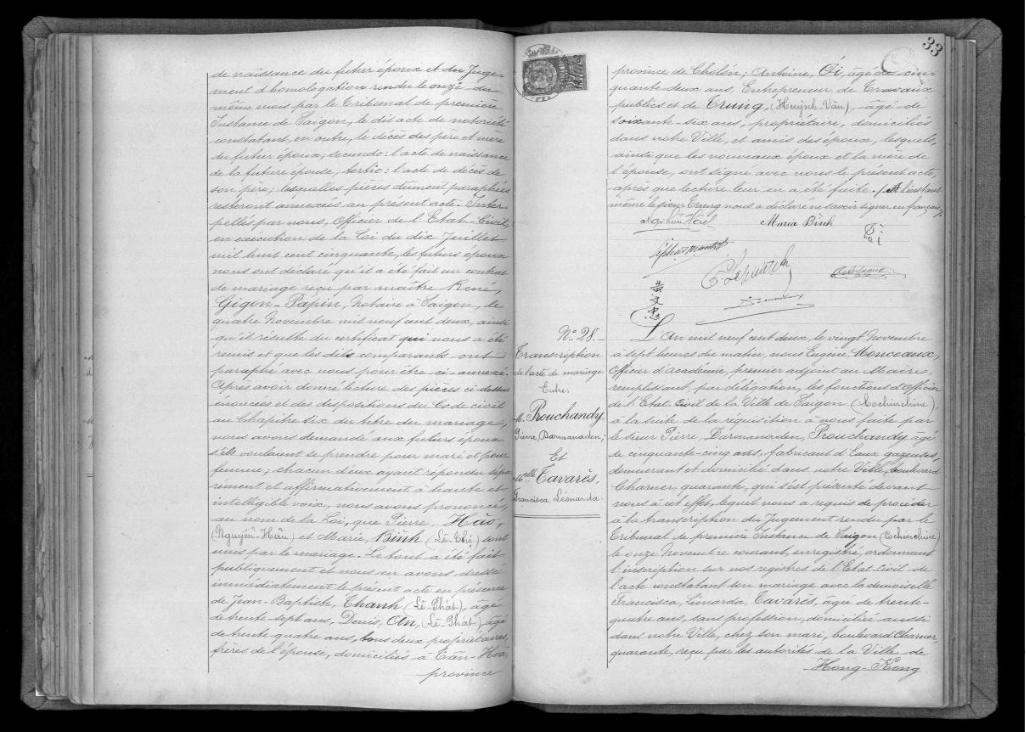 de naissance du futur époux et du Juge-
ment d'homologation rendu le onze du
même mois par le Tribunal de première
Instance de Saigon, le dit acte de notoriété
constatant, en outre, le décès des père et mère
du futur époux, secundo: l'acte de naissance
de la future épouse, tertio: l'acte de décès de
son père; lesquelles pièces dûment paraphées
resteront annexées au présent acte. Inter-
pellés par nous, Officier de l'Etat-Civil,
en exécution de la Loi du dix Juillet
mil huit cent cinquante, les futurs époux
nous ont déclaré qu'il a été fait un contrat
de mariage reçu par maître René,
Gigon-Papin, Notaire à Saigon, le
quatre Novembre mil neuf cent deux, ainsi
qu'il résulte du certificat qui nous a été
remis et que les dits comparants ont
paraphé avec nous pour être ci-annexé.
Après avoir donné lecture des pièces ci-dessus
énoncées et des dispositions du Code civil
au Chapitre six du titre du mariage,
nous avons demandé aux futurs époux
s'ils voulaient se prendre pour mari et pour
femme; chacun d'eux ayant répondu sépa-
rément et affirmativement à haute et
intelligible voix, nous avons prononcé,
au nom de la Loi, que Pierre, Hâo,
(Nguyễn-Hâu) et Marie, Binh (Lê-Thị) sont
unis par le mariage. Le tout a été fait
publiquement et nous en avons dressé
immédiatement le présent acte en présence
de Jean-Baptiste, Thanh (Lê-Phát), âgé
de trente-sept ans, Denis, An, (Lê-Phát), âgé
de trente-quatre ans, tous deux propriétaires,
frères de l'épouse, domiciliés à Tân-Hòa,
province
33
province de Chôlôn; Antoine, Oi, âgé de cin-
quante-deux ans, Entrepreneur de Travaux
publics et de Trung, (Huỳnh-Vân), âgé de
soixante-six ans, propriétaire, domiciliés
dans notre Ville, et amis des époux, lesquels,
ainsi que les nouveaux époux et la mère de
l'épouse, ont signé avec nous le présent acte,
après que lecture leur en a été faite. /. A l'instant
même le sieur Trung nous a déclaré ne savoir signer en français./.
Maria Binh
黃文忠
No 28.
Transcription
de l'acte de mariage
Entre
M. Prouchandy
Pierre, Darmanaden,
Et
Melle Tavarès,
Francisca, Léonarda.
L'An mil neuf cent deux, le vingt Novembre
à sept heures du matin, nous Eugène Monceaux,
Officier d'académie, premier adjoint au Maire,
remplissant, par délégation, les fonctions d'Officier
de l'Etat-Civil de la Ville de Saigon (Cochinchine)
à la suite de la réquisition à nous faite par
le Sieur Pierre, Darmanaden, Prouchandy, âgé
de cinquante-cinq ans, fabricant d'Eaux gazeuses,
demeurant et domicilié dans notre Ville, boulevard
Charner quarante, qui s'est présenté devant
nous à cet effet, lequel nous a requis de procéder
à la transcription du Jugement rendu par le
Tribunal de première Instance de Saigon (Cochinchine)
le onze Novembre courant, enregistré, ordonnant
l'inscription sur nos registres de l'Etat-Civil de
l'acte constatant son mariage avec la demoiselle
Francisca, Léonarda, Tavarès, âgée de trente-
quatre ans, sans profession, domiciliée aussi
dans notre Ville, chez son mari, boulevard Charner
quarante, reçu par les autorités de la Ville de
Hong-Kong